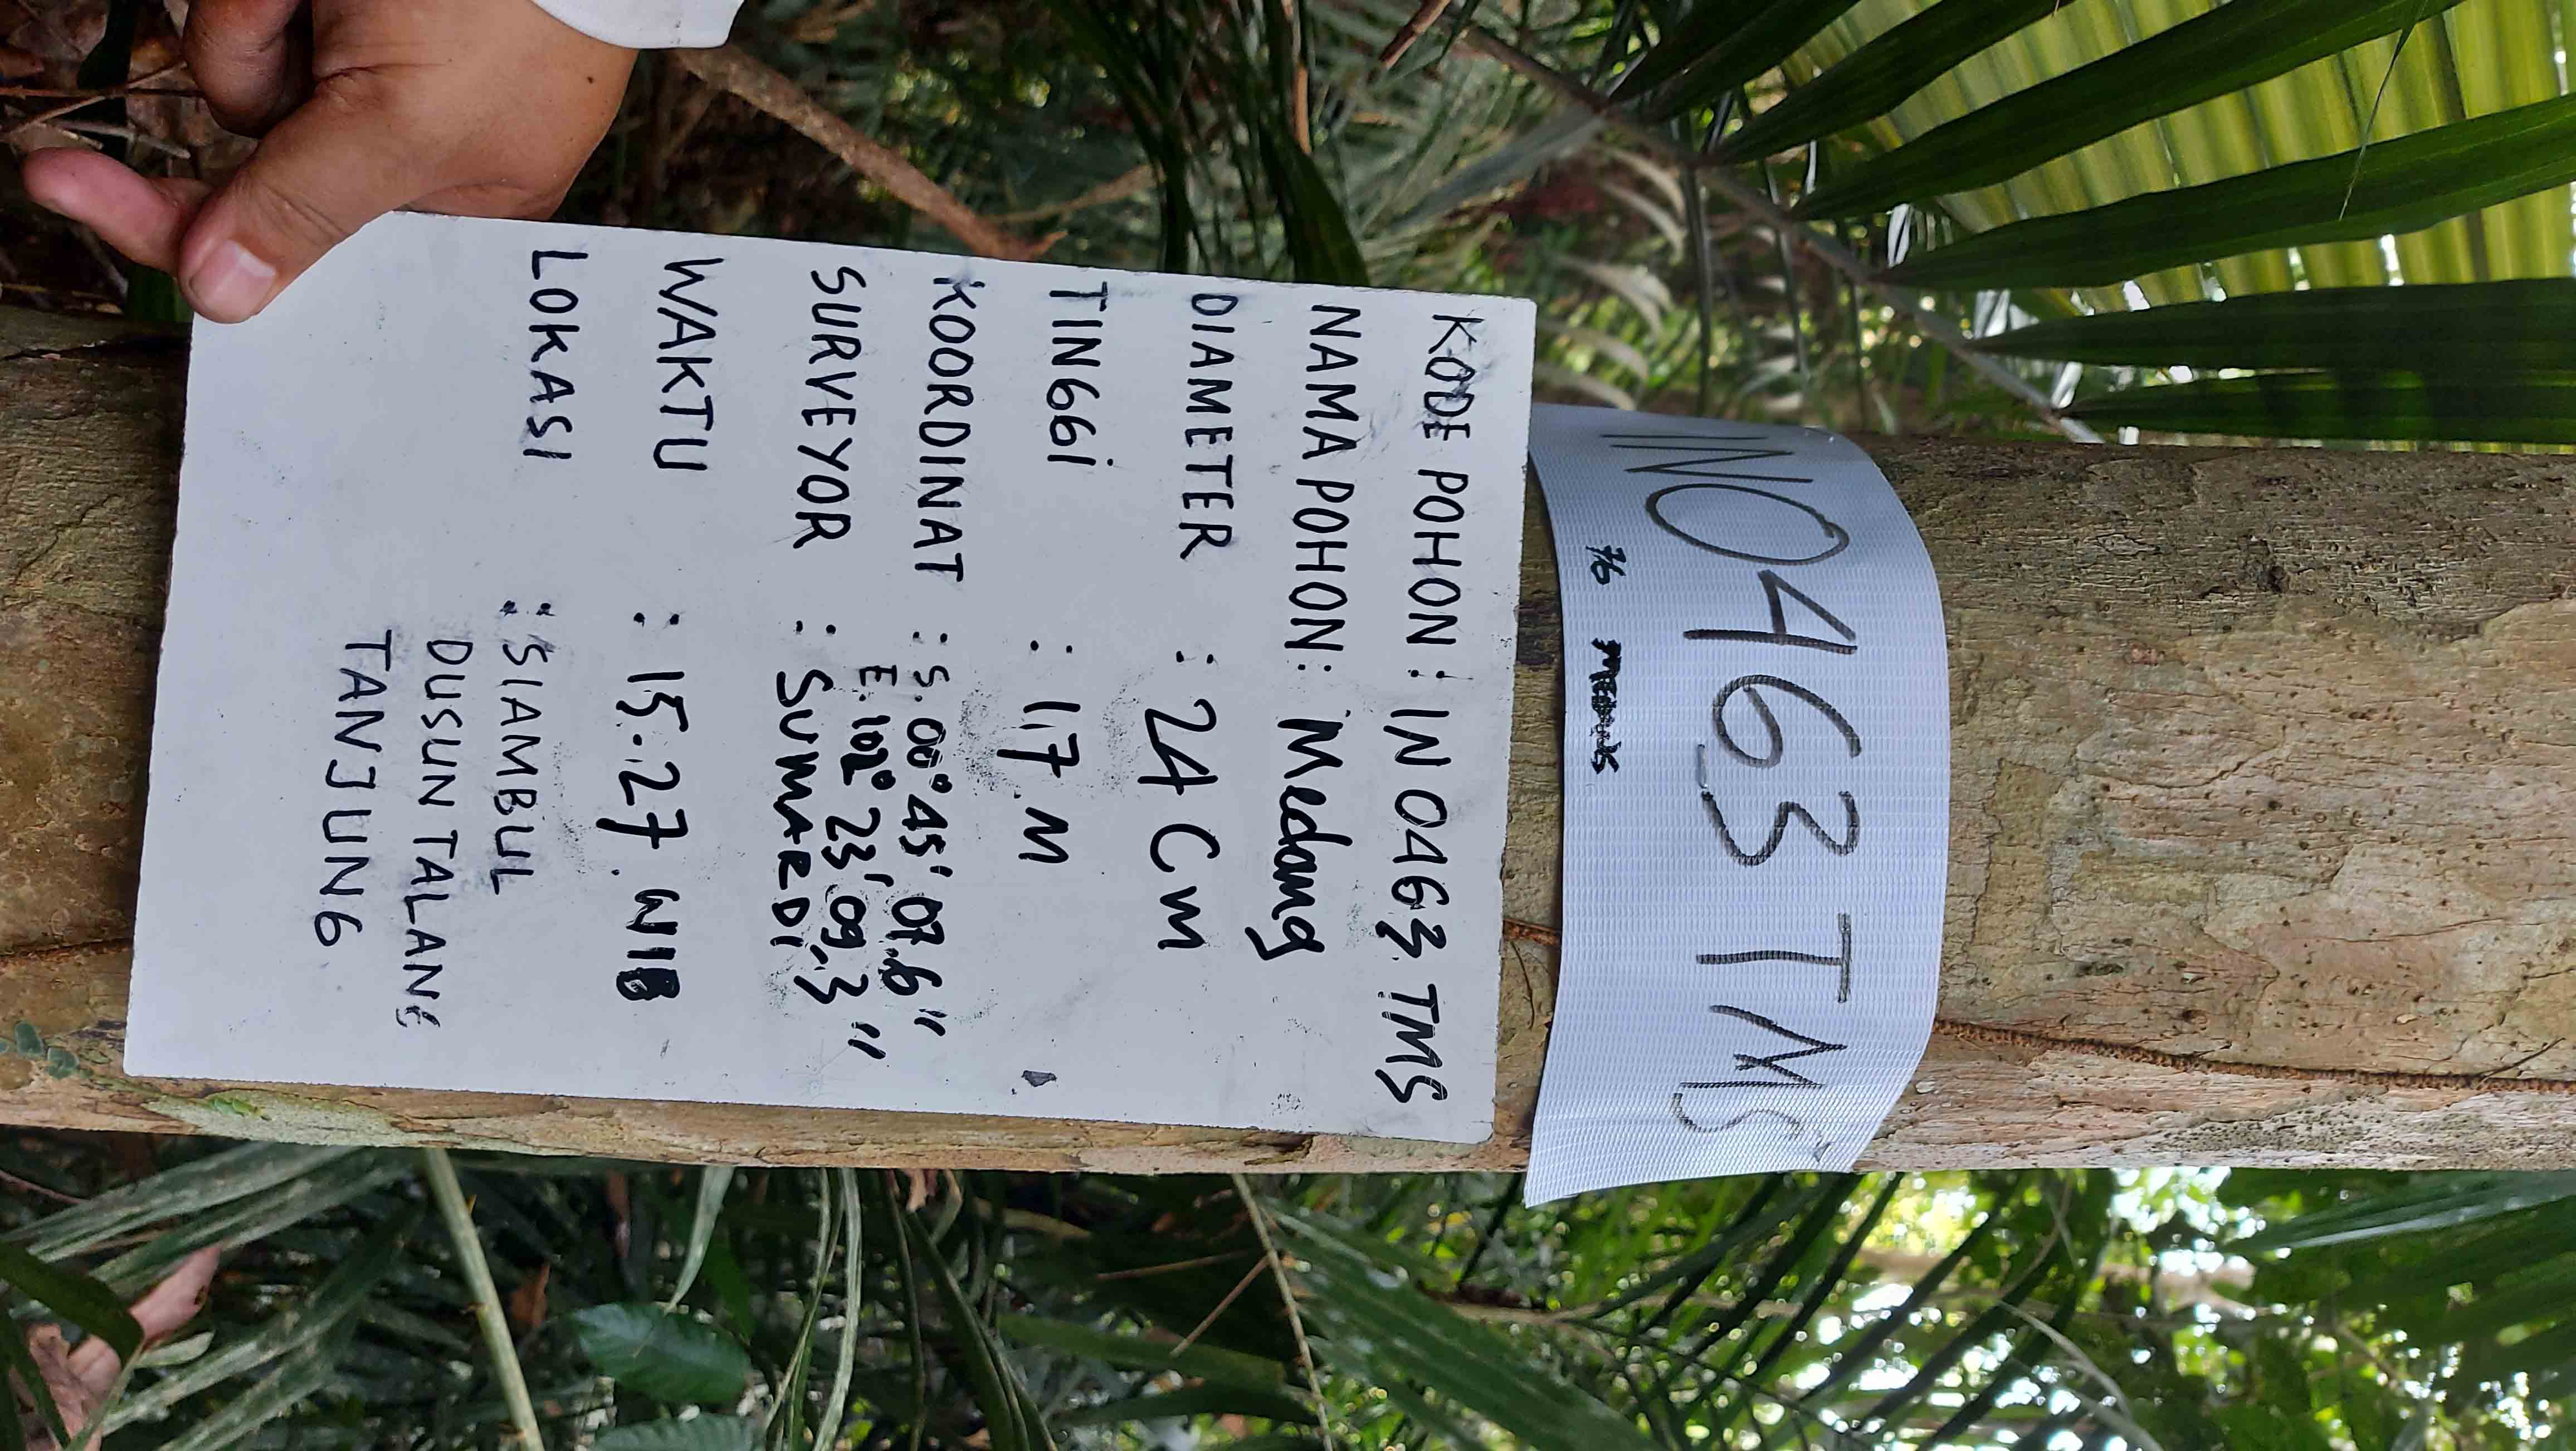 IN0463 TMS
7/6
KODE POHON : IN 0463 TMS
NAMA POHON : Medang
DIAMETER : 24 Cm
TINGGI : 17 M
KOORDINAT : S. 00° 45' 07.6"
E. 102° 23' 09,3"
SURVEYOR : SUMARDI
WAKTU : 15.27 WIB
LOKASI : SIAMBUL
DUSUN TALANG
TANJUNG